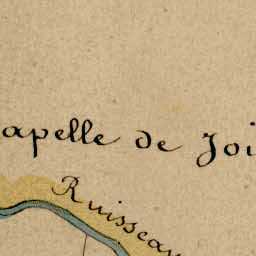 apelle de Joi
Ruisseau